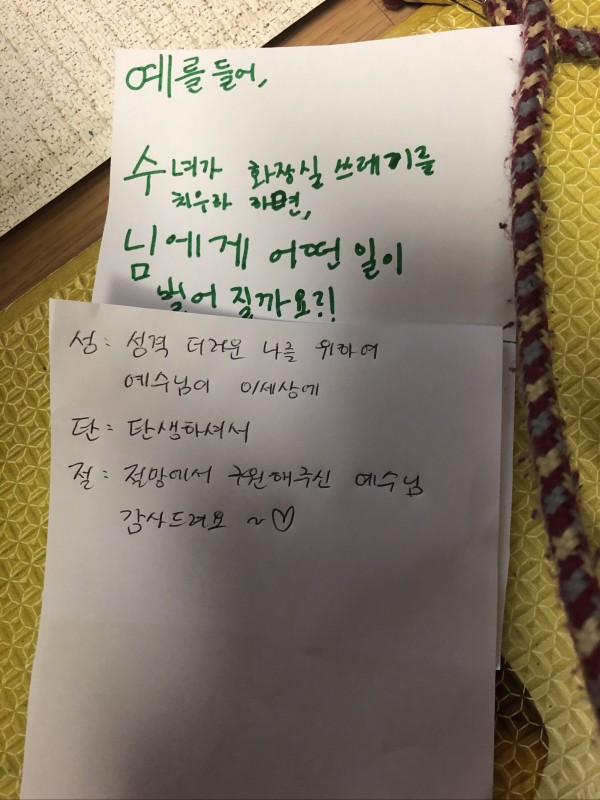 예를 들어,
수녀가 화장실 쓰레기를
치우라 하면,
님에게 어떤 일이
벌어 질까요?!
성: 성격 더러운 나를 위하여
예수님이 이세상에
탄: 탄생하셔서
절: 절망에서 구원해주신 예수님
감사드려요 ~♡